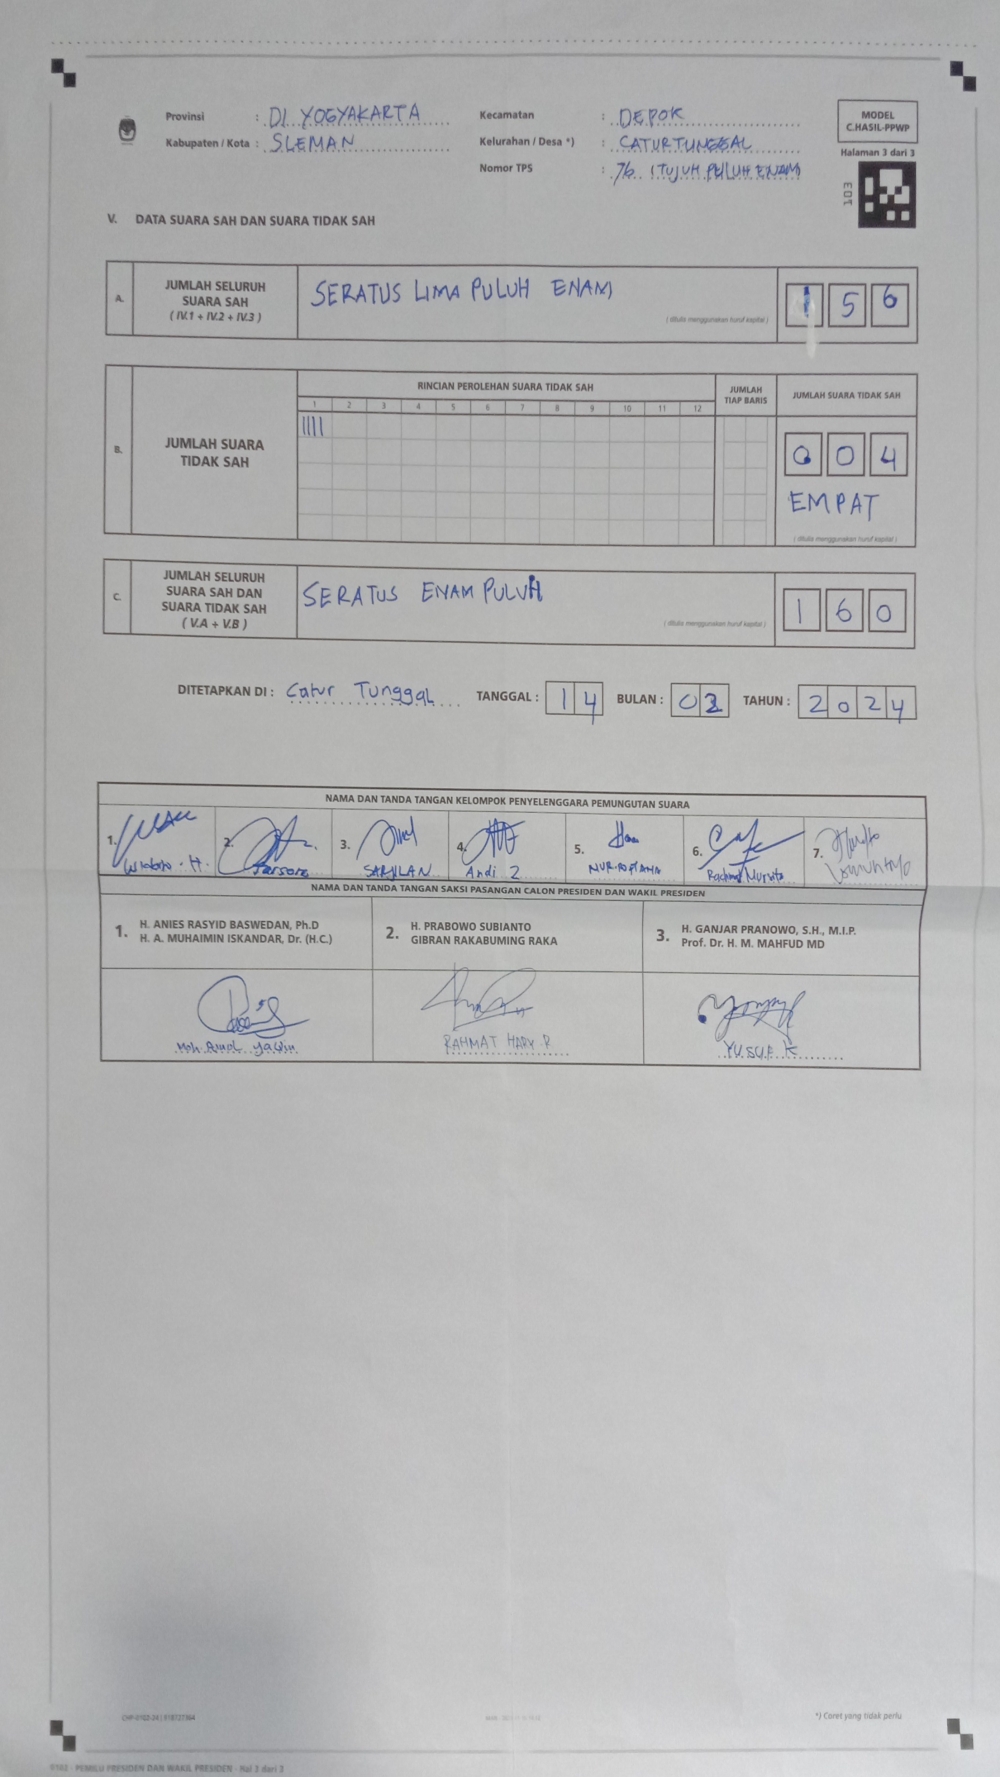 Provinsi : DI YOGYAKARTA
Kabupaten / Kota : SLEMAN
Kecamatan : DEPOK
Kelurahan / Desa *) : CATURTUNGGAL
Nomor TPS : 76 (TUJUH PULUH ENAM)
MODEL
C.HASIL-PPWP
Halaman 3 dari 3
V. DATA SUARA SAH DAN SUARA TIDAK SAH
A. JUMLAH SELURUH
SUARA SAH
( IV.1 + IV.2 + IV.3 )
SERATUS LIMA PULUH ENAM
( ditulis menggunakan huruf kapital )
1 5 6
B. JUMLAH SUARA
TIDAK SAH
RINCIAN PEROLEHAN SUARA TIDAK SAH
1 2 3 4 5 6 7 8 9 10 11 12
||||
JUMLAH
TIAP BARIS
JUMLAH SUARA TIDAK SAH
0 0 4
EMPAT
( ditulis menggunakan huruf kapital )
C. JUMLAH SELURUH
SUARA SAH DAN
SUARA TIDAK SAH
( V.A + V.B )
SERATUS ENAM PULUH
( ditulis menggunakan huruf kapital )
1 6 0
DITETAPKAN DI : Catur Tunggal TANGGAL : 14 BULAN : 02 TAHUN : 2024
NAMA DAN TANDA TANGAN KELOMPOK PENYELENGGARA PEMUNGUTAN SUARA
1. 2. 3. 4. 5. 6. 7.
SARJILAN Andi Z
NAMA DAN TANDA TANGAN SAKSI PASANGAN CALON PRESIDEN DAN WAKIL PRESIDEN
1. H. ANIES RASYID BASWEDAN, Ph.D
H. A. MUHAIMIN ISKANDAR, Dr. (H.C.)
2. H. PRABOWO SUBIANTO
GIBRAN RAKABUMING RAKA
3. H. GANJAR PRANOWO, S.H., M.I.P.
Prof. Dr. H. M. MAHFUD MD
RAHMAT HARY R
YUSUF K
*) Coret yang tidak perlu
PEMILU PRESIDEN DAN WAKIL PRESIDEN - Hal 3 dari 3